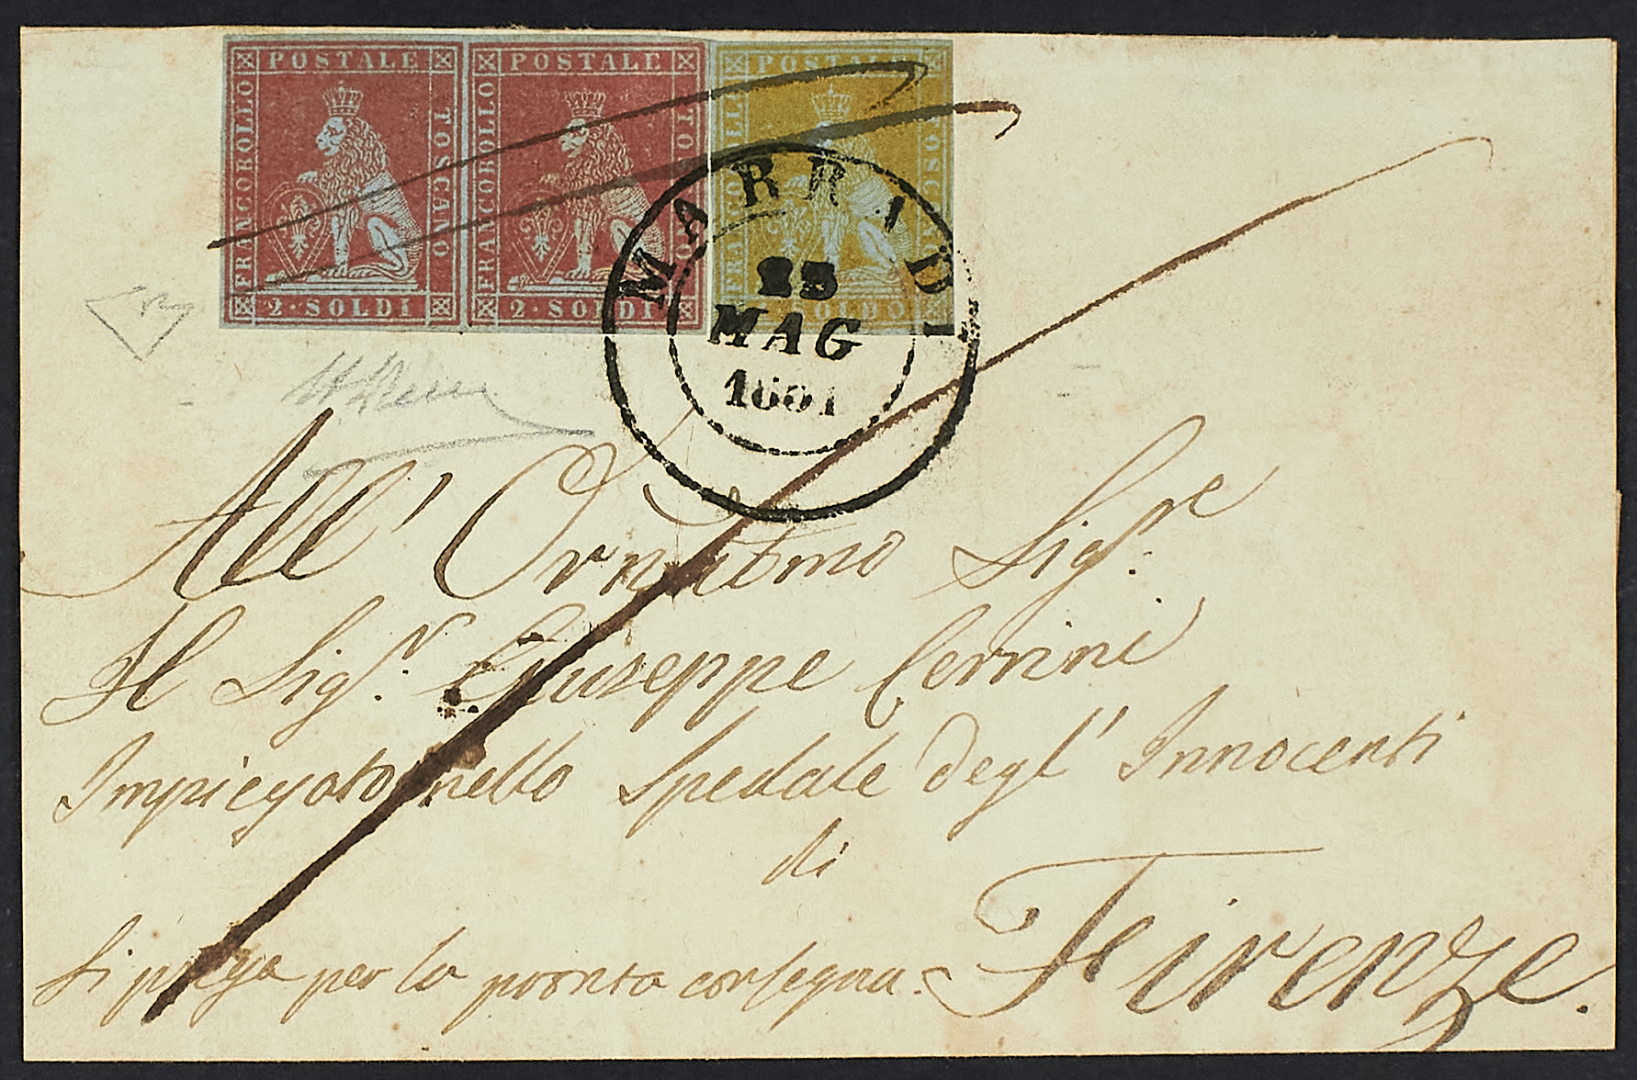 POSTALE POSTALE POSTALE
FRANCOBOLLO TOSCANO FRANCOBOLLO TOSCANO
2·SOLDI 2·SOLDI SOLDO
MARRADI
MAG
1851
All' Ornatmo Sigre
Il Sigr. Giuseppe Cerrini
Impiegato nello Spedale degl' Innocenti
di
Firenze.
Si prega per la pronta consegna.